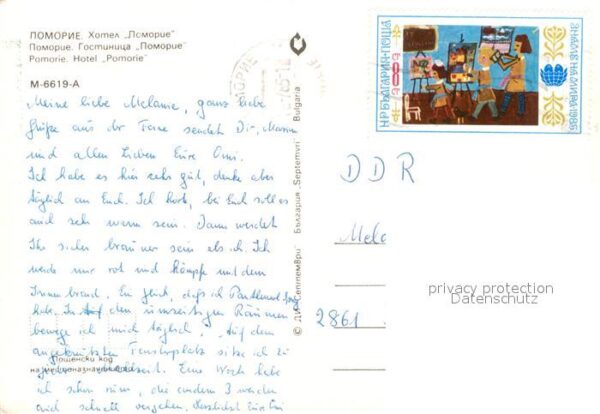 ПОМОРИЕ. Хотел „Поморие"
Поморие. Гостиница „Поморие"
Pomorie. Hotel „Pomorie"
М-6619-А
Meine liebe Melanie, ganz liebe
Grüße aus der Ferne sendet Dir,
und allen Lieben Eure Omi.
Ich habe es hier sehr gut, denke aber
täglich an Euch. Ich hort, bei Euch soll es
auch sehr warm sein. Dann werdet
Ihr sicher brauner sein als ich. Ich
werde nur rot und kämpfe mit dem
Sonnenbrand. Ein Glück, daß ich
habe. In den winzigen Räumen
bewege ich mich täglich. Auf dem
Fensterplatz sitze ich zu
Eine Woche habe
ich schon rum, die andern 3 werden
auch schnell vergehen. Herzlichst Eure Omi
Пощенски код
на местоназначението
© ДИ „Септември" България „Septemvri" Bulgaria
НР БЪЛГАРИЯ·ПОЩА
8
ЗНАМЕ НА МИРА·1985
DDR
Mela
2861
privacy protection
Datenschutz